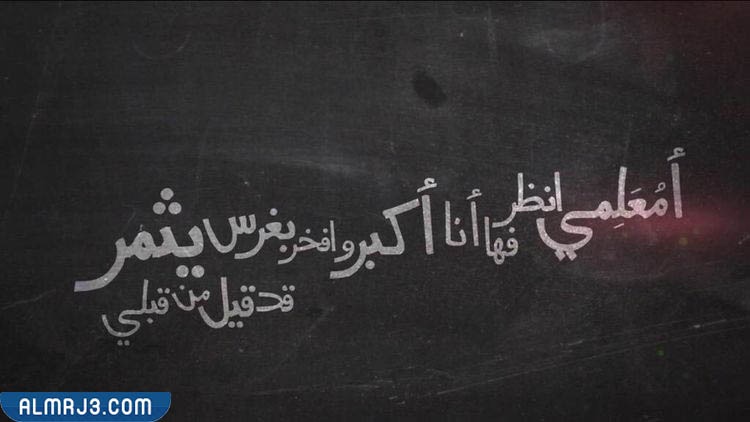 أمُعَلِمي انظر فها أنا أكبر وافخر بغرس يثمر
قد قيل من قبلي
ALMRJ3.COM